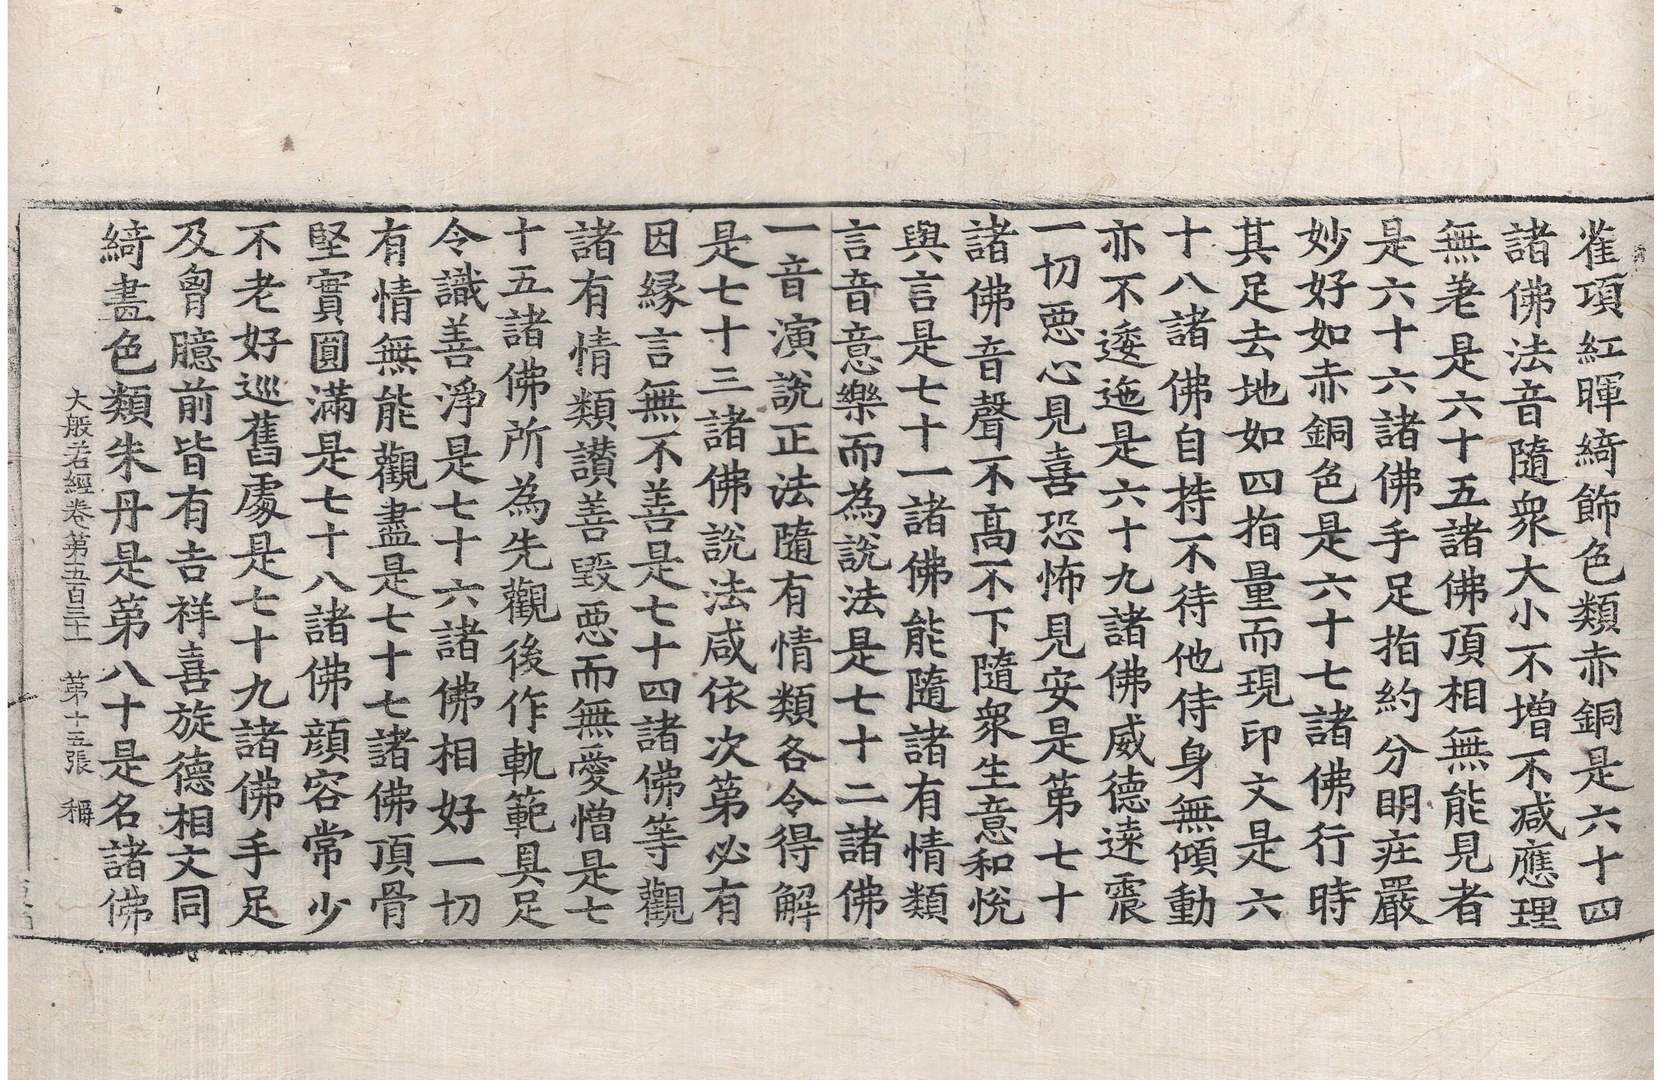 雀項紅暉綺飾色類赤銅是六十四
諸佛法音隨衆大小不增不減應理
無差是六十五諸佛頂相無能見者
是六十六諸佛手足指約分明荘嚴
妙好如赤銅色是六十七諸佛行時
其足去地如四指量而現印文是六
十八諸佛自持不待他侍身無傾動
亦不逶迤是六十九諸佛威德遠震
一切惡心見喜恐怖見安是第七十
諸佛音聲不高不下隨衆生意和悅
與言是七十一諸佛能隨諸有情類
言音意樂而為說法是七十二諸佛
一音演說正法隨有情類各令得解
是七十三諸佛說法咸依次第必有
因緣言無不善是七十四諸佛等觀
諸有情類讃善毀惡而無愛憎是七
十五諸佛所為先觀後作軌範具足
令識善淨是七十六諸佛相好一切
有情無能觀盡是七十七諸佛頂骨
堅實圓滿是七十八諸佛顔容常少
不老好巡舊處是七十九諸佛手足
及胷臆前皆有吉祥喜旋德相文同
綺畫色類朱丹是第八十是名諸佛
大般若經卷第五百三十一 第十五張 稱